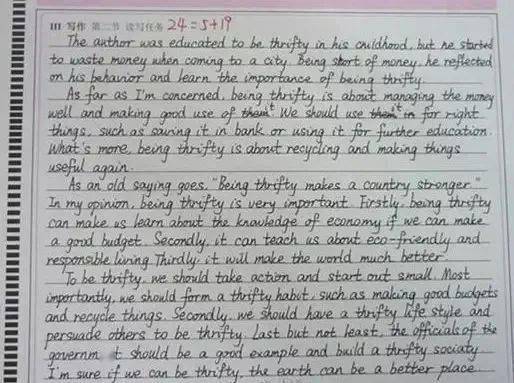 III 写作 第二节 读写任务 24=5+19
The author was educated to be thrifty in his childhood, but he started
to waste money when coming to a city. Being short of money, he reflected
on his behavior and learn the importance of being thrifty.
As far as I'm concerned, being thrifty is about managing the money
well and making good use of them it. We should use them it in for right
things, such as saving it in bank or using it for further education.
What's more, being thrifty is about recycling and making things
useful again.
As an old saying goes, "Being thrifty makes a country stronger."
In my opinion, being thrifty is very important. Firstly, being thrifty
can make us learn about the knowledge of economy if we can make
a good budget. Secondly, it can teach us about eco-friendly and
responsible living. Thirdly, it will make the world much better.
To be thrifty, we should take action and start out small. Most
importantly, we should form a thrifty habit, such as making good budgets
and recycle things. Secondly, we should have a thrifty life style and
persuade others to be thrifty. Last but not least, the officials of the
governm t should be a good example and build a thrifty sociaty.
I'm sure if we can be thrifty, the earth can be a better place.